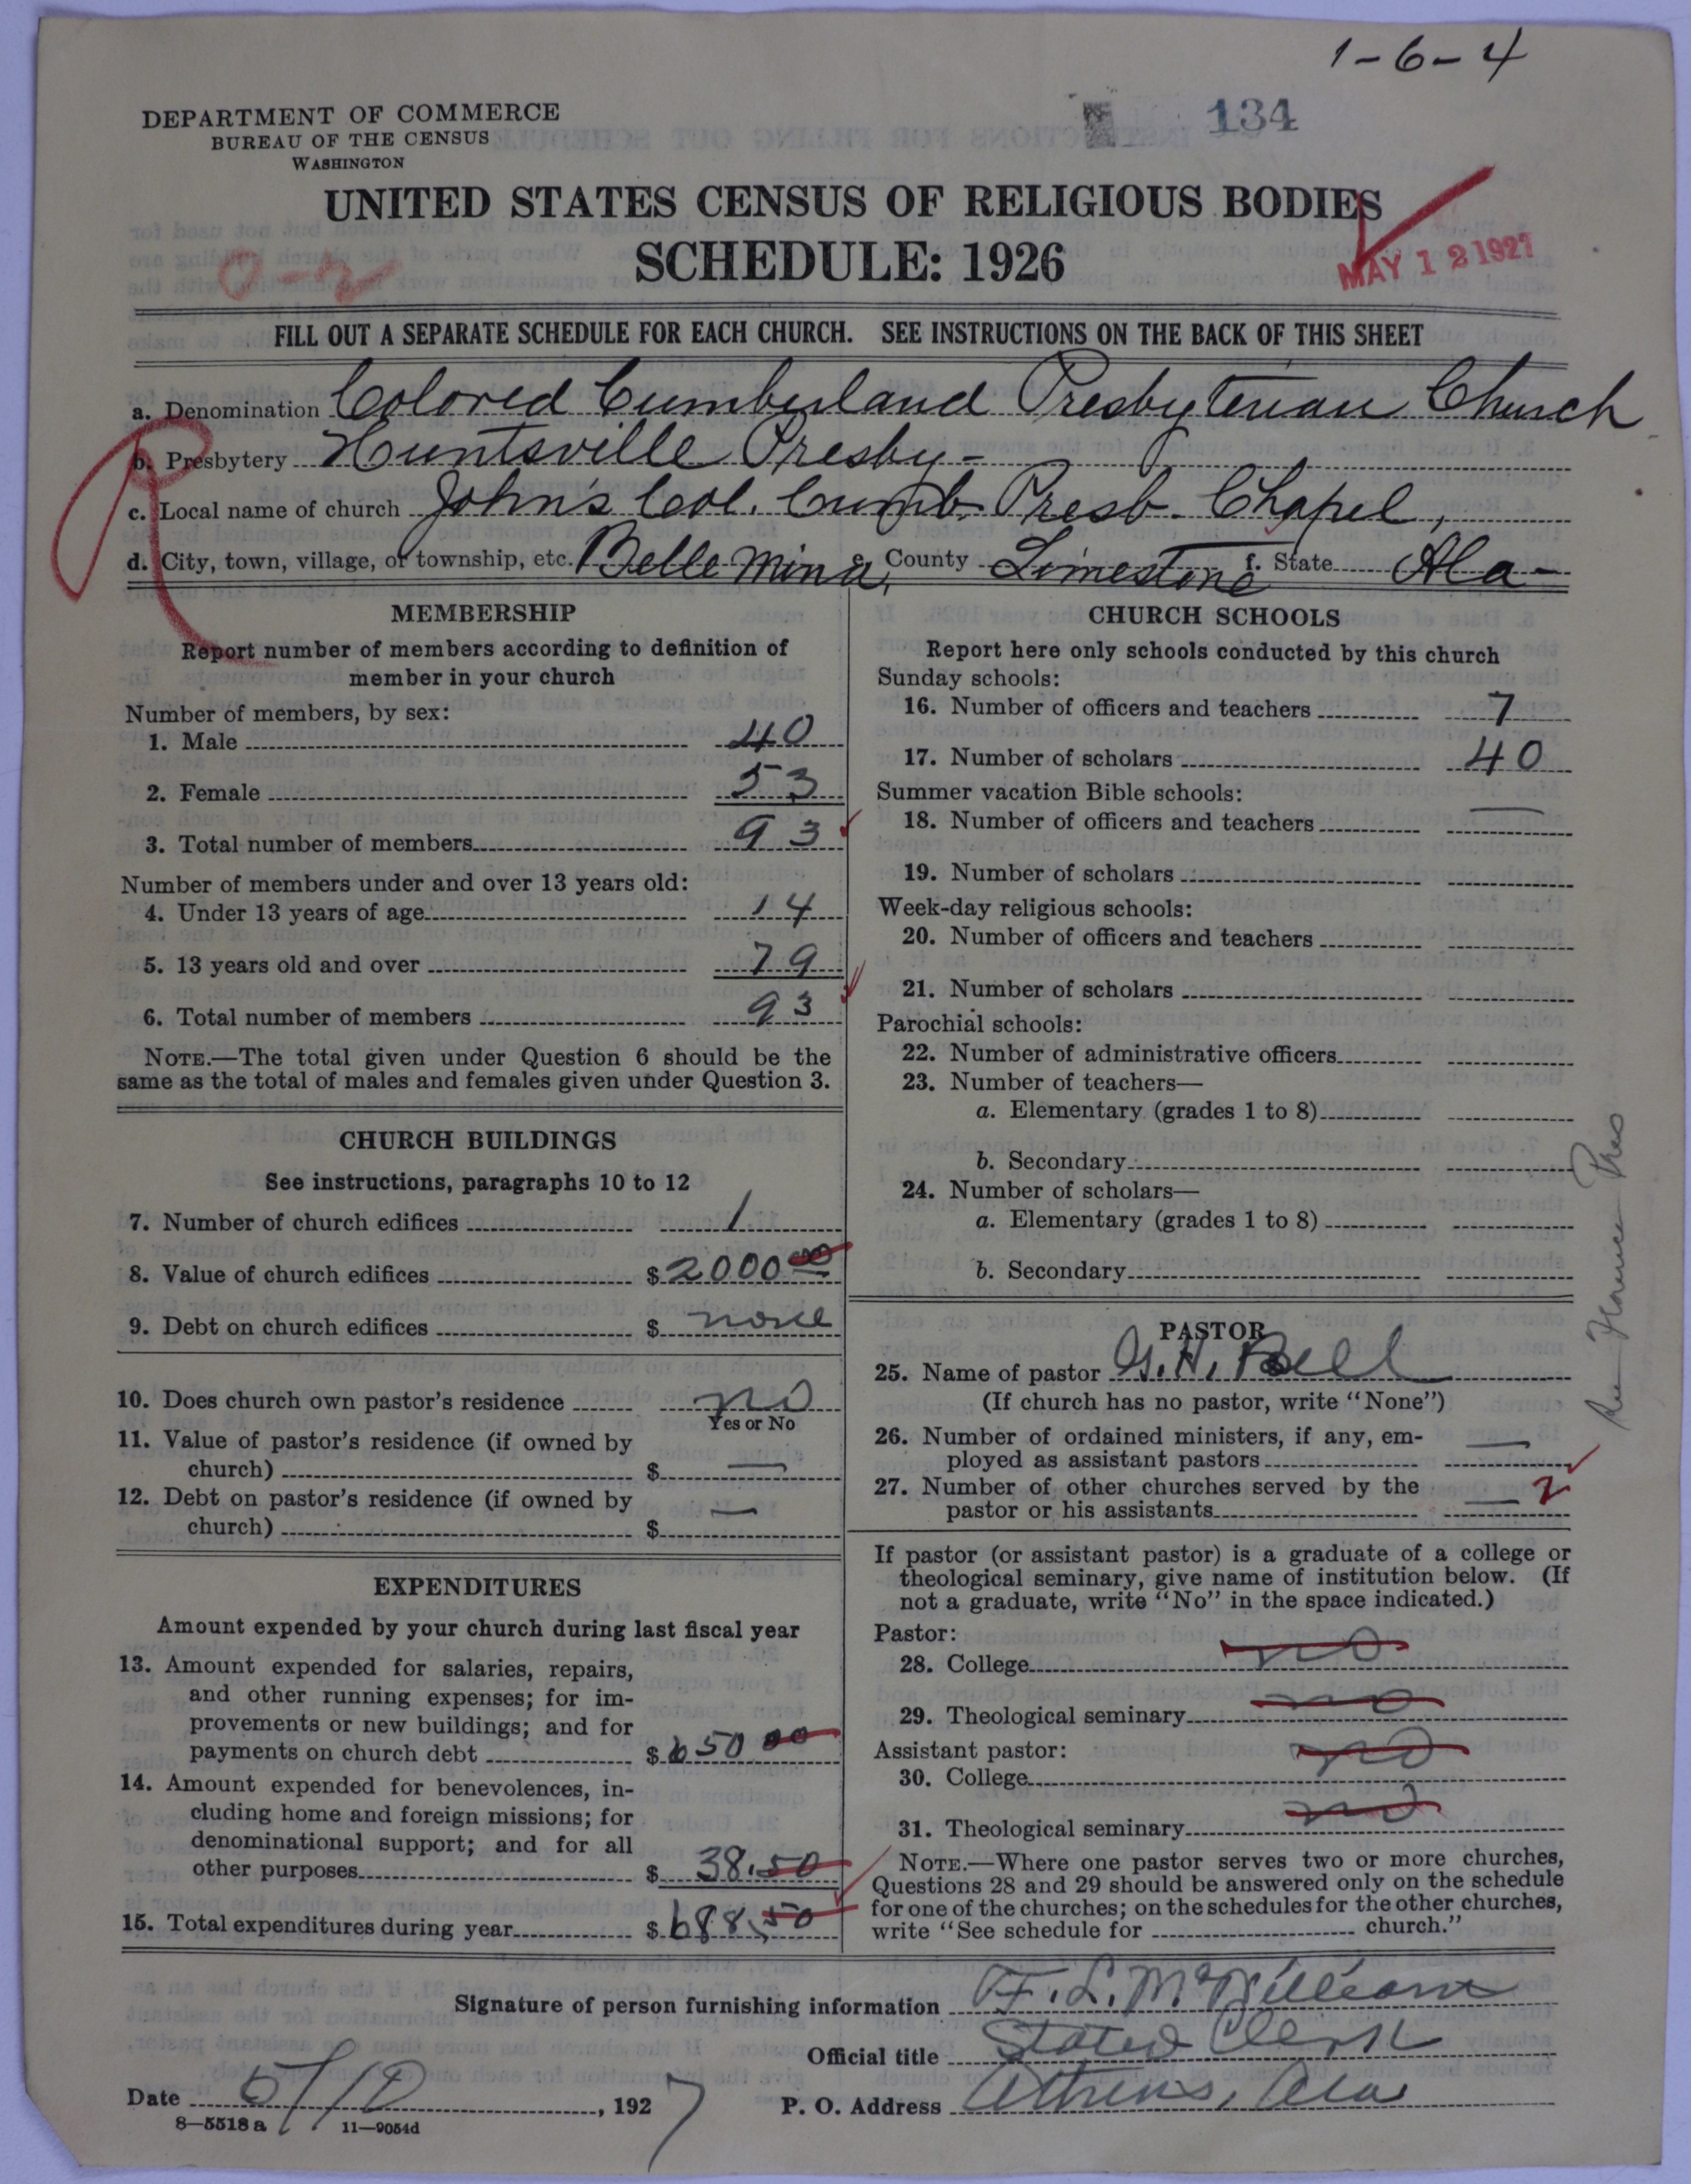 1-6-4
134
DEPARTMENT OF COMMERCE
BUREAU OF THE CENSUS
WASHINGTON
UNITED STATES CENSUS OF RELIGIOUS BODIES
SCHEDULE: 1926
MAY 12 1927
FILL OUT A SEPARATE SCHEDULE FOR EACH CHURCH. SEE INSTRUCTIONS ON THE BACK OF THIS SHEET
a. Denomination Colored Cumberland Presbyterian Church
b. Presbytery Huntsville Presby-
c. Local name of church John's Col. Cumb. Presb. Chapel,
d. City, town, village, or township, etc. Belle Mina, e. County Limestone f. State Ala-
MEMBERSHIP
Report number of members according to definition of
member in your church
Number of members, by sex:
1. Male 40
2. Female 53
3. Total number of members 93
Number of members under and over 13 years old:
4. Under 13 years of age 14
5. 13 years old and over 79
6. Total number of members 93
NOTE.—The total given under Question 6 should be the
same as the total of males and females given under Question 3.
CHURCH BUILDINGS
See instructions, paragraphs 10 to 12
7. Number of church edifices 1
8. Value of church edifices $2000 00
9. Debt on church edifices $ none
10. Does church own pastor's residence no
Yes or No
11. Value of pastor's residence (if owned by
church) $ —
12. Debt on pastor's residence (if owned by
church) $ —
EXPENDITURES
Amount expended by your church during last fiscal year
13. Amount expended for salaries, repairs,
and other running expenses; for im-
provements or new buildings; and for
payments on church debt $650 00
14. Amount expended for benevolences, in-
cluding home and foreign missions; for
denominational support; and for all
other purposes $ 38.50
15. Total expenditures during year $688.50
CHURCH SCHOOLS
Report here only schools conducted by this church
Sunday schools:
16. Number of officers and teachers 7
17. Number of scholars 40
Summer vacation Bible schools:
18. Number of officers and teachers —
19. Number of scholars
Week-day religious schools:
20. Number of officers and teachers
21. Number of scholars
Parochial schools:
22. Number of administrative officers
23. Number of teachers—
a. Elementary (grades 1 to 8)
b. Secondary
24. Number of scholars—
a. Elementary (grades 1 to 8)
b. Secondary
PASTOR
25. Name of pastor G. H. Bell
(If church has no pastor, write "None")
26. Number of ordained ministers, if any, em-
ployed as assistant pastors —
27. Number of other churches served by the
pastor or his assistants — 2
If pastor (or assistant pastor) is a graduate of a college or
theological seminary, give name of institution below. (If
not a graduate, write "No" in the space indicated.)
Pastor:
28. College no
29. Theological seminary no
Assistant pastor:
30. College no
31. Theological seminary no
NOTE.—Where one pastor serves two or more churches,
Questions 28 and 29 should be answered only on the schedule
for one of the churches; on the schedules for the other churches,
write "See schedule for church."
Signature of person furnishing information F. L. McWilliams
Official title Stated Clerk
Date 5/10, 1927 P. O. Address Athens, Ala
8—5518a 11—9054d